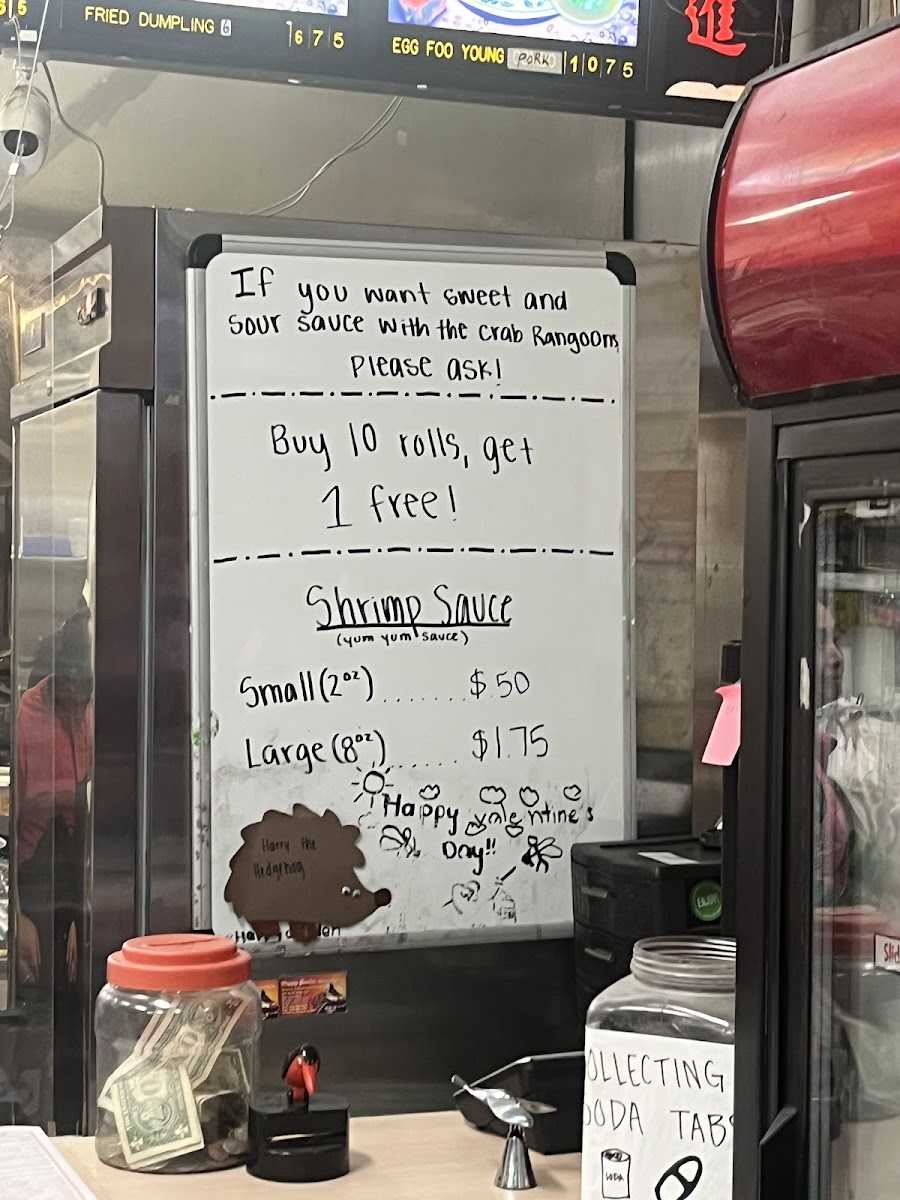 FRIED DUMPLING 6 1675
EGG FOO YOUNG PORK 1075
進
If you want sweet and
sour sauce with the crab Rangoons,
Please ask!
Buy 10 rolls, get
1 free!
Shrimp Sauce
(yum yum sauce)
Small (2oz) ....... $.50
Large (8oz) ...... $1.75
Happy Valentine's
Day!!
Harry the
Hedgehog
ENJOY
Slid
OLLECTING
ODA TABS
SODA